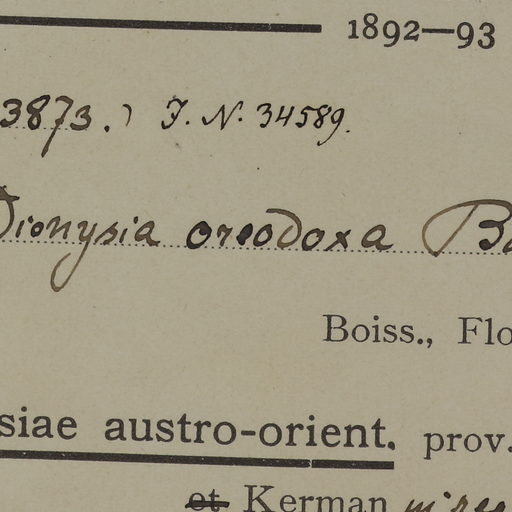 1892—93
3873.) J. N. 34589.
Dionysia oreodoxa
Boiss., Flo
siae austro-orient. prov.
et Kerman